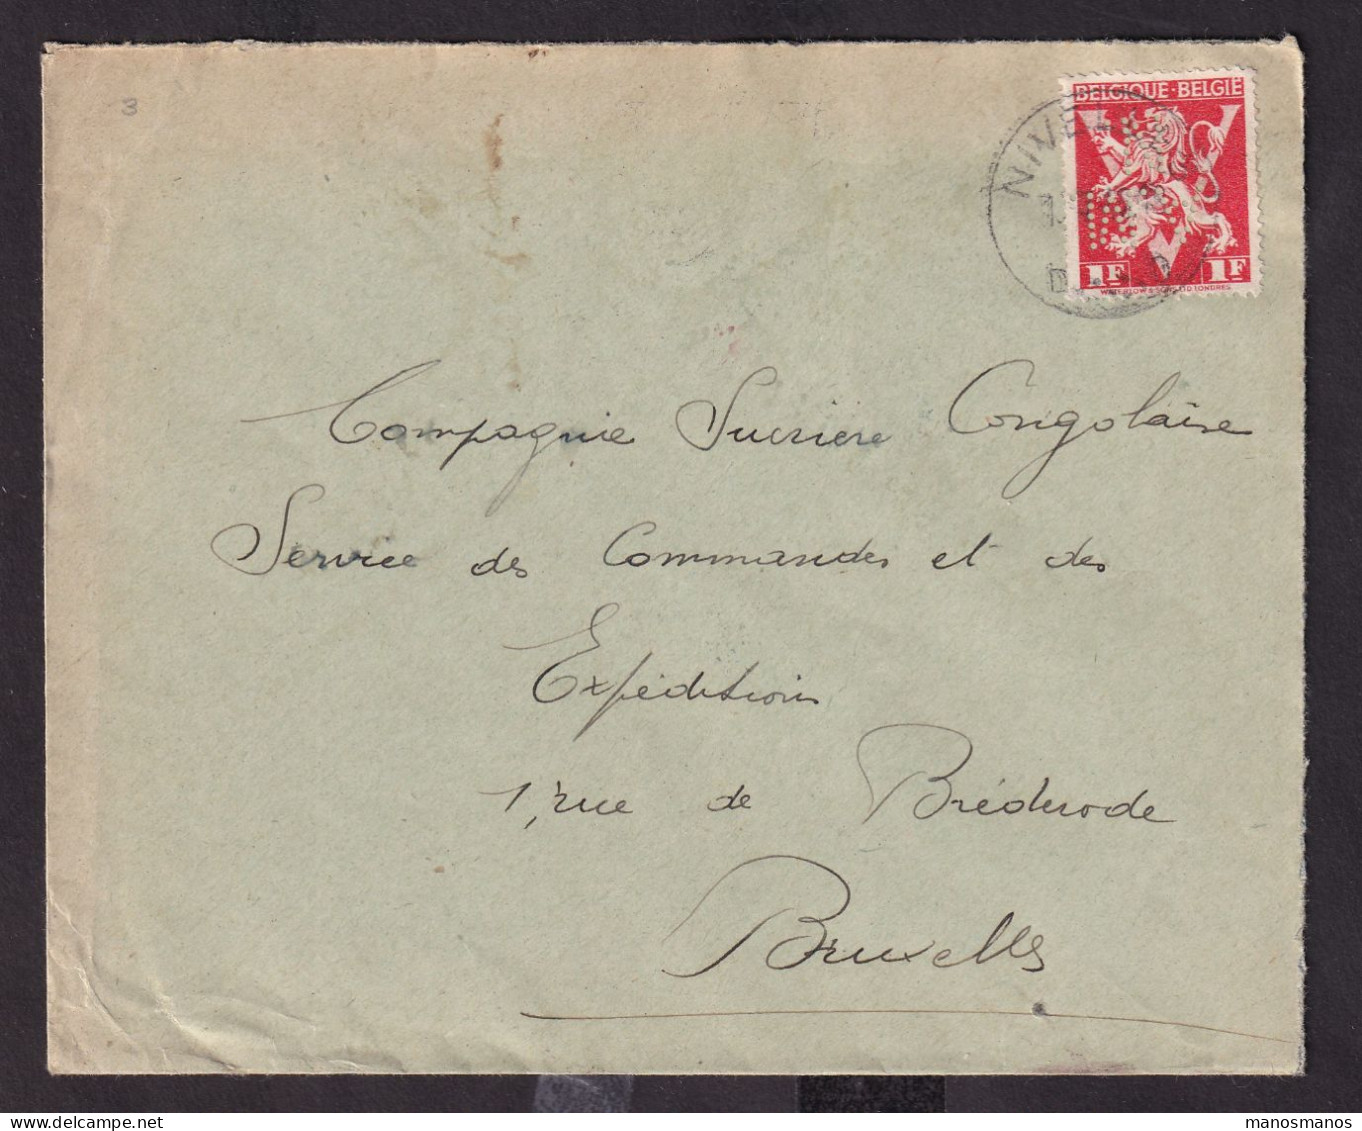 3
BELGIQUE·BELGIË
NIVEL
1F 1F
WATERLOW & SONS LTD. LONDRES
Compagnie Sucrière Congolaise
Service des Commandes et des
Expéditions
1, rue de Bréderode
Bruxelles
manosmanos